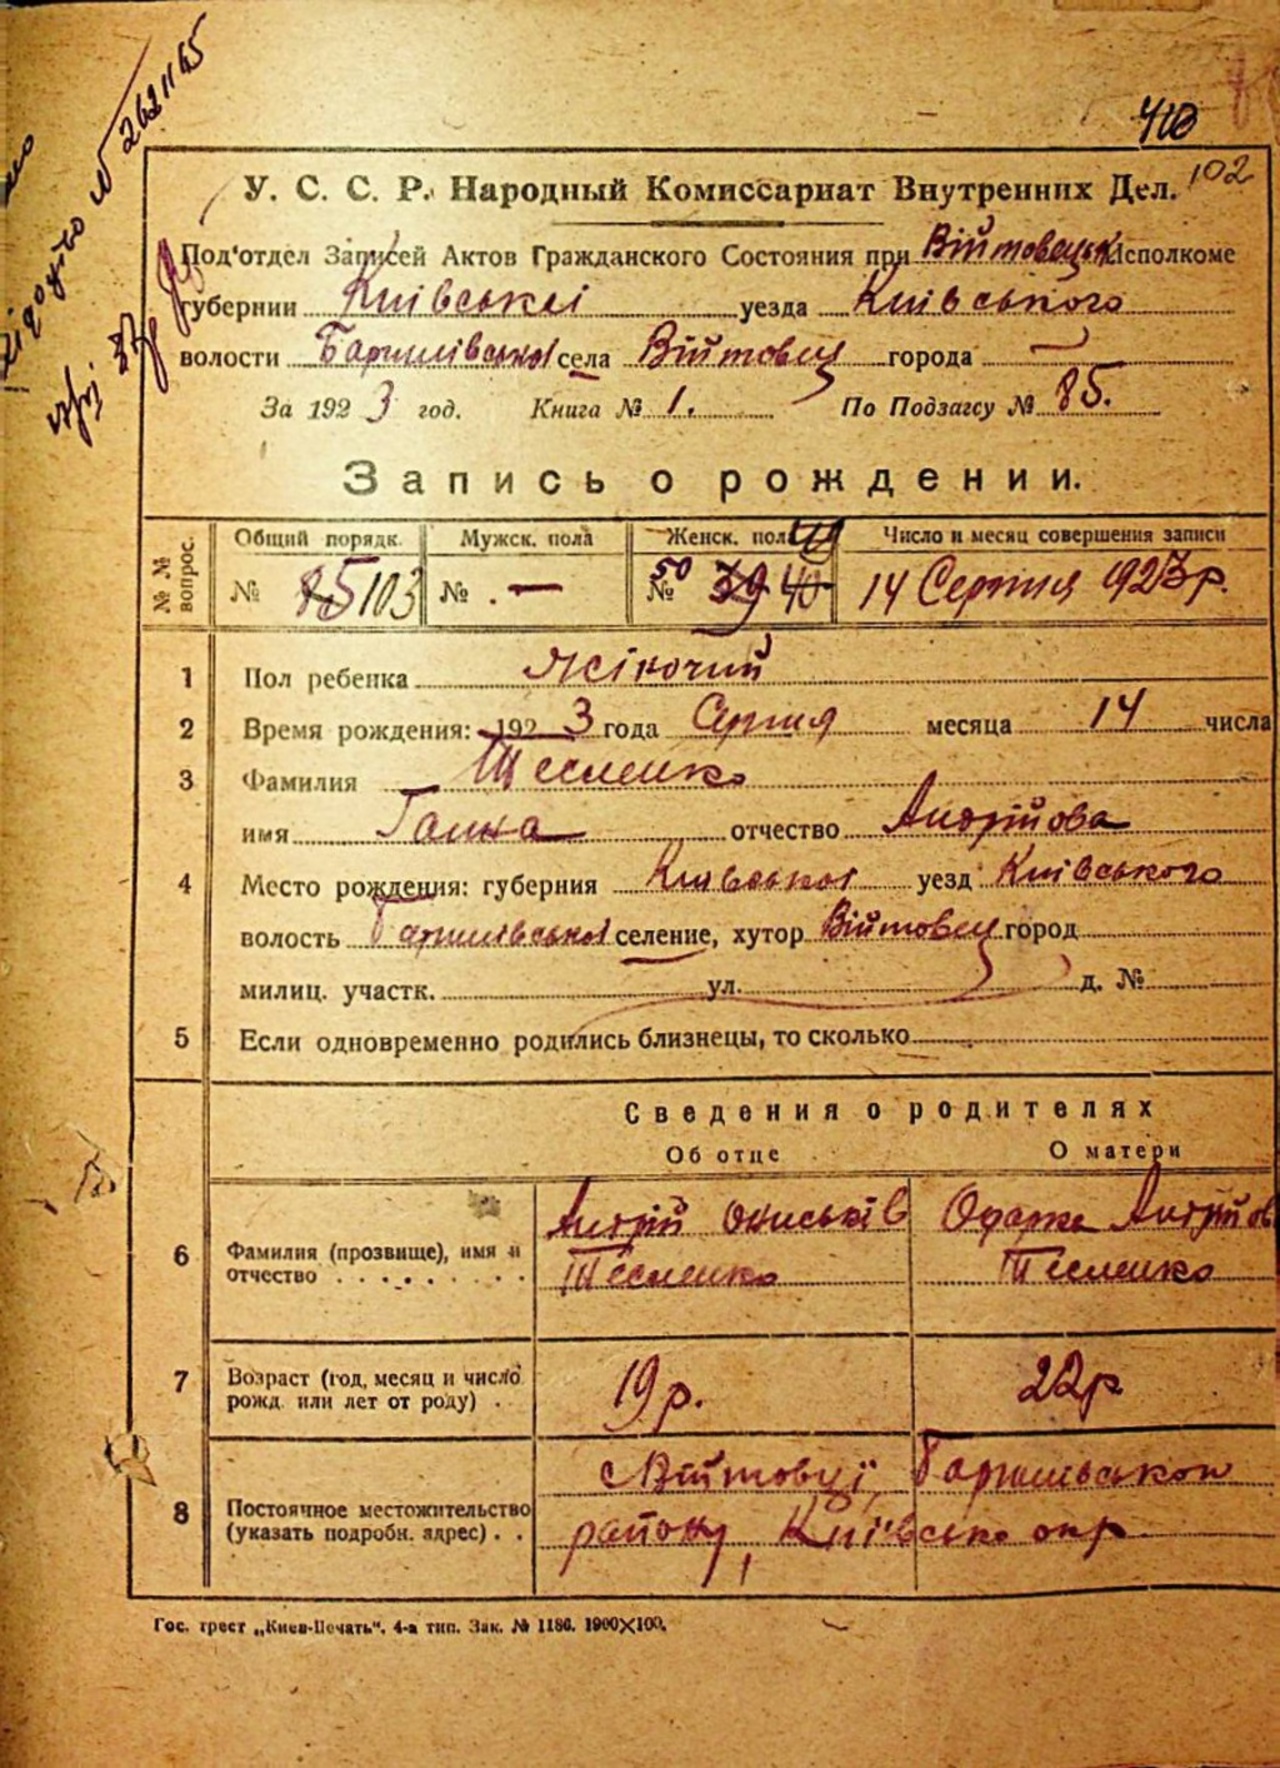 № 2621165
413
102
У. С. С. Р. Народный Комиссариат Внутренних Дел.
Под'отдел Записей Актов Гражданского Состояния при Війтовецьк Исполкоме
губернии Київської уезда Київського
волости Баришівської села Війтовец города —
За 1923 год. Книга № 1. По Подзагсу № 85.
Запись о рождении.
№№ вопрос. Общий порядк. Мужск. пола Женск. пола Число и месяц совершения записи
№ 85 103 № — № 50 39 40 14 Серпня 1923 р.
1 Пол ребенка Жіночий
2 Время рождения: 1923 года Серпня месяца 14 числа
3 Фамилия Тесленко
имя Ганна отчество Андрійова
4 Место рождения: губерния Київської уезд Київського
волость Баришівської селение, хутор Війтовец город
милиц. участк. ул. д. №
5 Если одновременно родились близнецы, то сколько
Сведения о родителях
Об отце О матери
6 Фамилия (прозвище), имя и отчество Андрій Ониськів Тесленко Одарка Андрійов Тесленко
7 Возраст (год, месяц и число рожд. или лет от роду) 19 р. 22 р
8 Постоянное местожительство (указать подробн. адрес) с Війтовці, Баришівського
району, Київсько окр.
Гос. трест „Киев-Печать“. 4-а тип. Зак. № 1186. 1900×100.